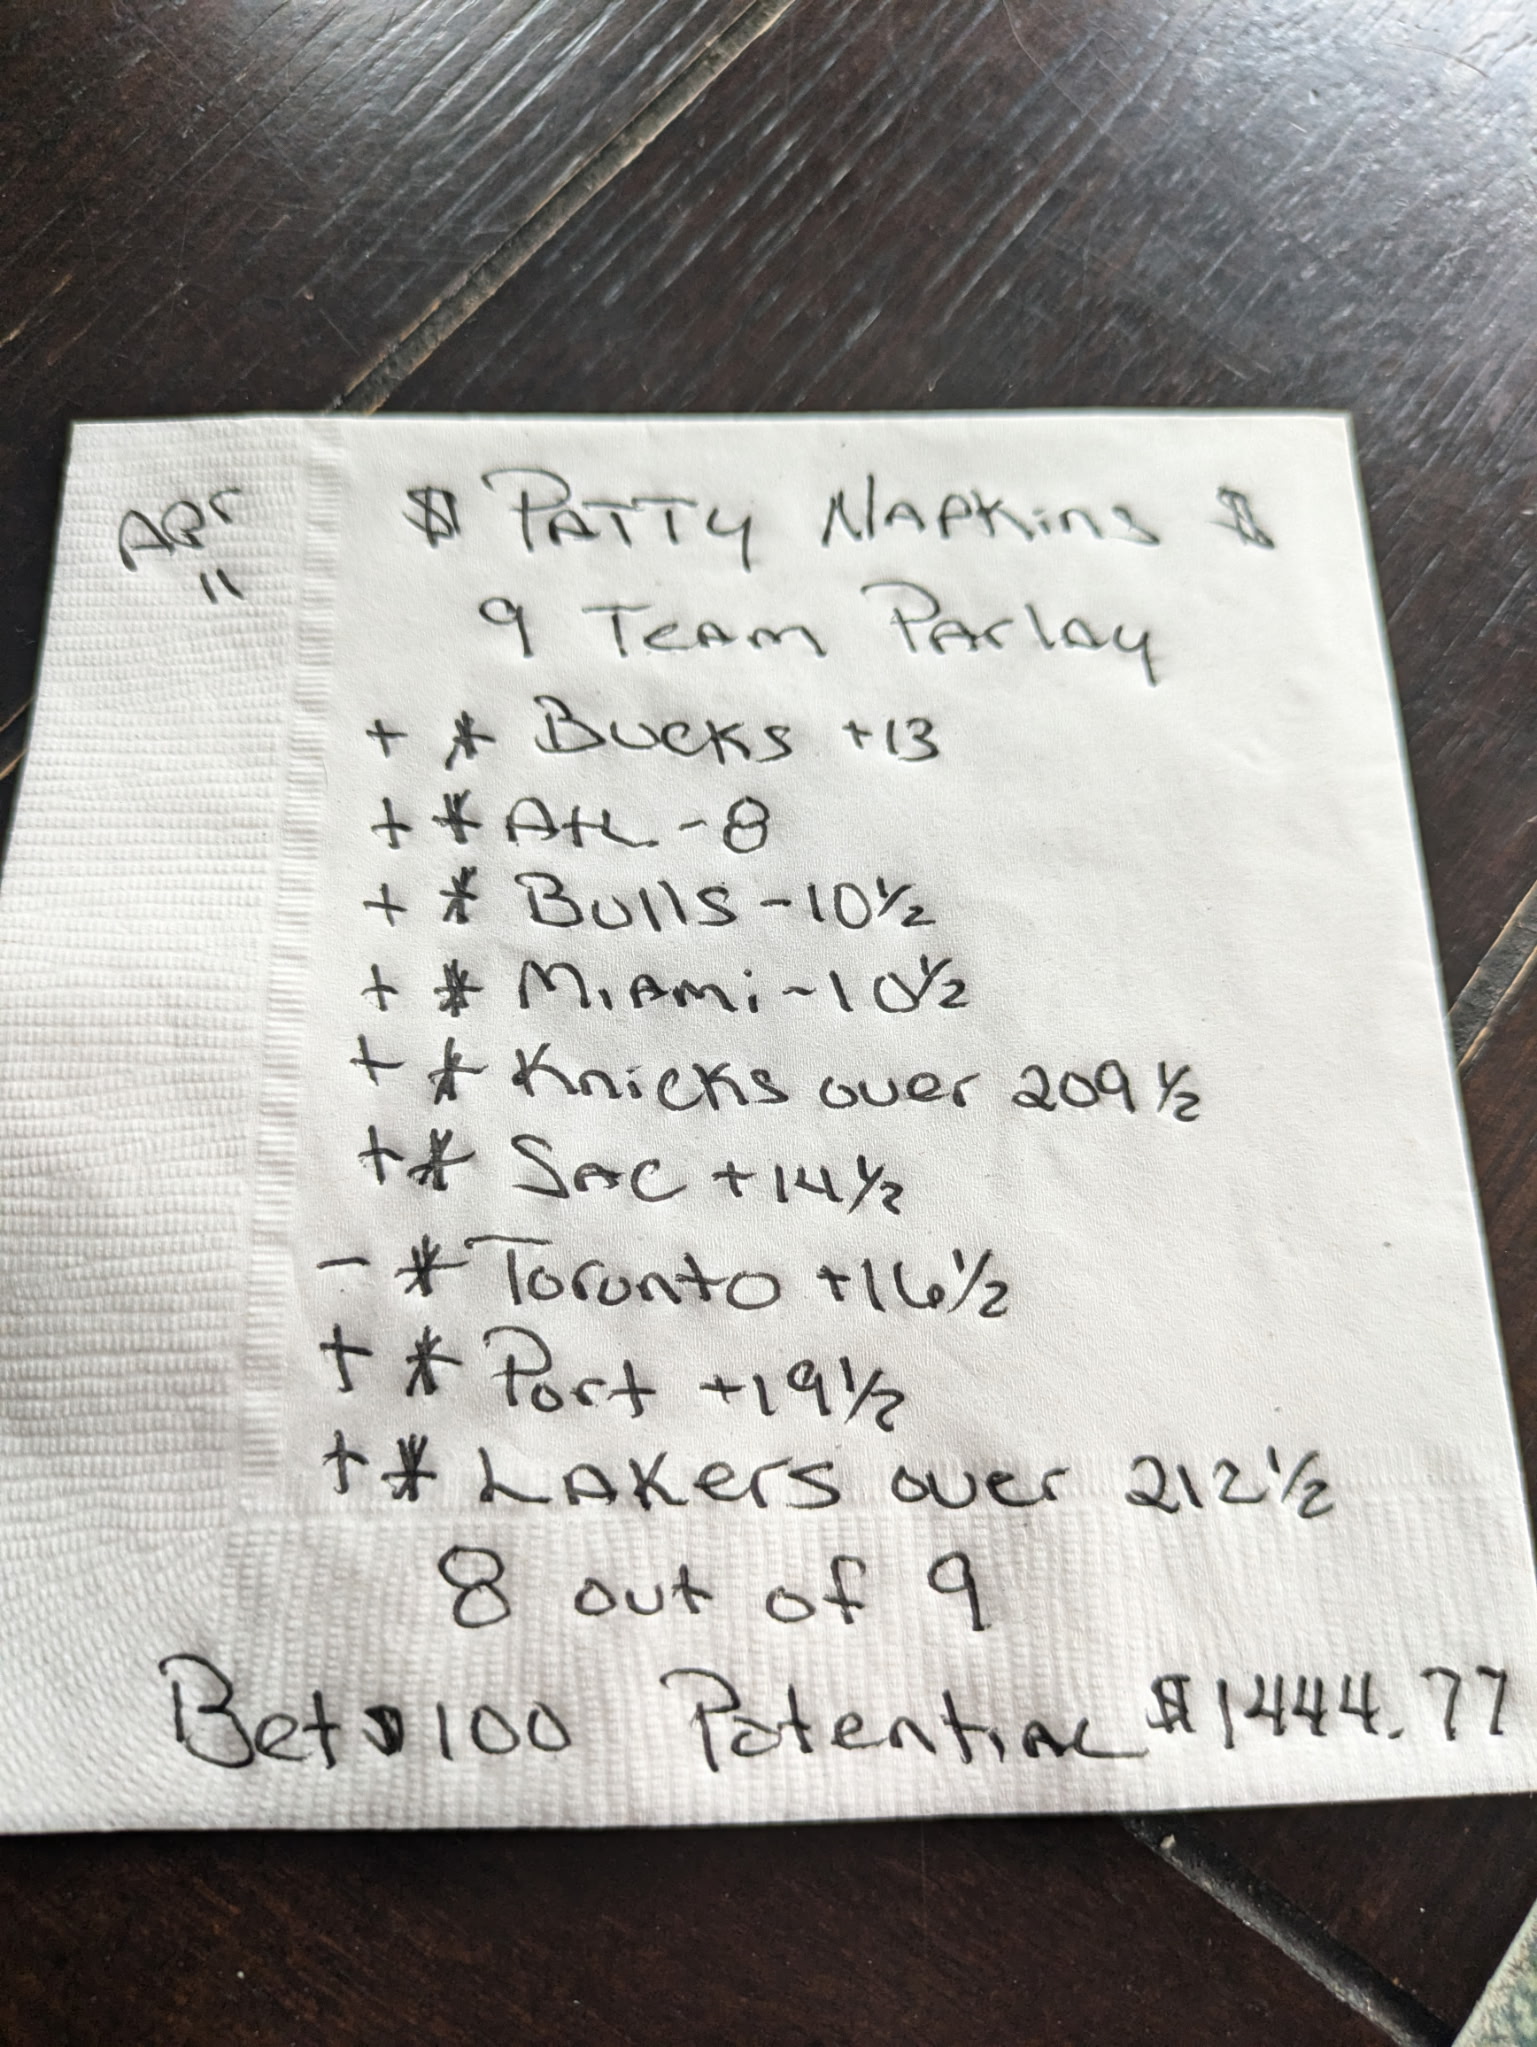 Apr
11
$ Patty Napkins $
9 Team Parlay
+ * Bucks +13
+ * Atl -8
+ * Bulls -10 1/2
+ * Miami -10 1/2
+ * Knicks over 209 1/2
+ * Sac +14 1/2
- * Toronto +16 1/2
+ * Port +19 1/2
+ * Lakers over 212 1/2
8 out of 9
Bet $100 Potential $1444.77